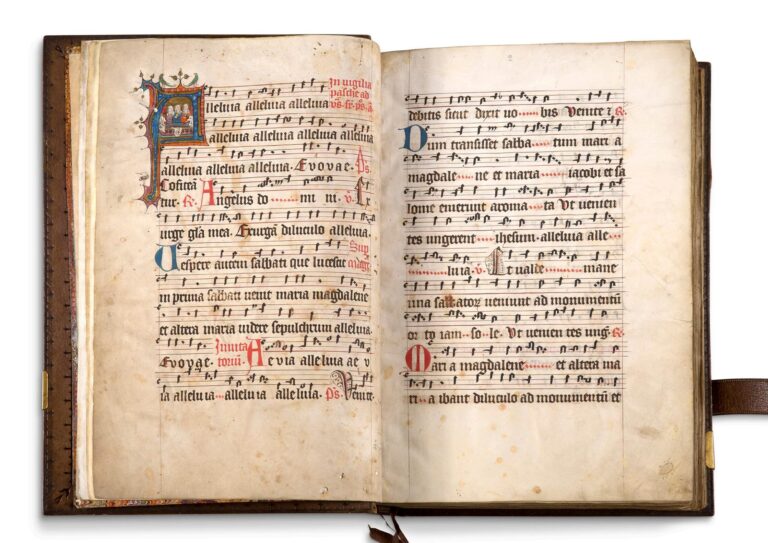 In vigilia
Alleluia alleluia alleluia pasche ad
alleluia alleluia alleluia alleluia
alleluia alleluia alleluia. Evovae. Ps
Cofitem̄
tur. R. Angelus do mi ni. v̄. Ex
urge gl̄a mea. Exurgā diluculo alleluia.
Vespere autem sabbati que lucescit
in prima sabbati venit maria magdalene
et altera maria videre sepulchrum alleluia.
Evovae. Invita
toriū. Aevia alleluia ae v
ia alleluia alleluia alleluia. Ps. Venite.
debitis sicut dixit vo bis Venite z R.
Dum transisset sabba tum mari a
magdale ne et maria iacobi et sa
lome emerunt aroma ta Ut venien
tes ungerent ihesum. alleluia alle
luia. v̄. Et valde mane
una sabbatoꝝ veniunt ad monumentū
or to iam so le. Ut venien tes ung. R.
Mari a magdalene et altera ma
ri a ibant diluculo ad monumentū et